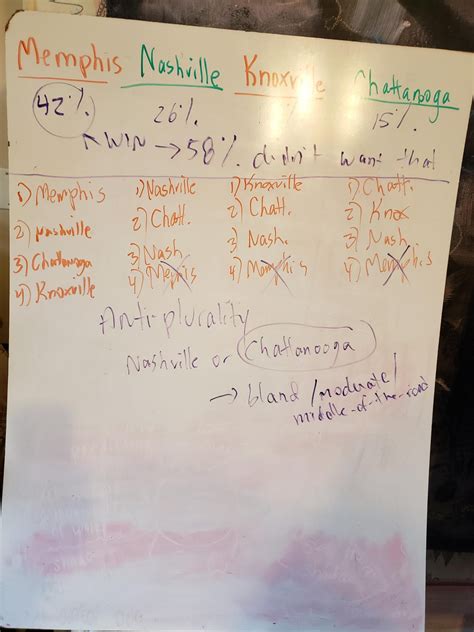 Memphis Nashville Knoxville Chattanooga
42% 26% % 15%
WIN → 58% didn't want that
1) Memphis 1) Nashville 1) Knoxville 1) Chatt.
2) Nashville 2) Chatt. 2) Chatt. 2) Knox
3) Chattanooga 3) Nash 3) Nash. 3) Nash
4) Knoxville 4) Memphis 4) Memphis 4) Memphis
Anti plurality
Nashville or Chattanooga
→ bland/moderate/
middle-of-the-road